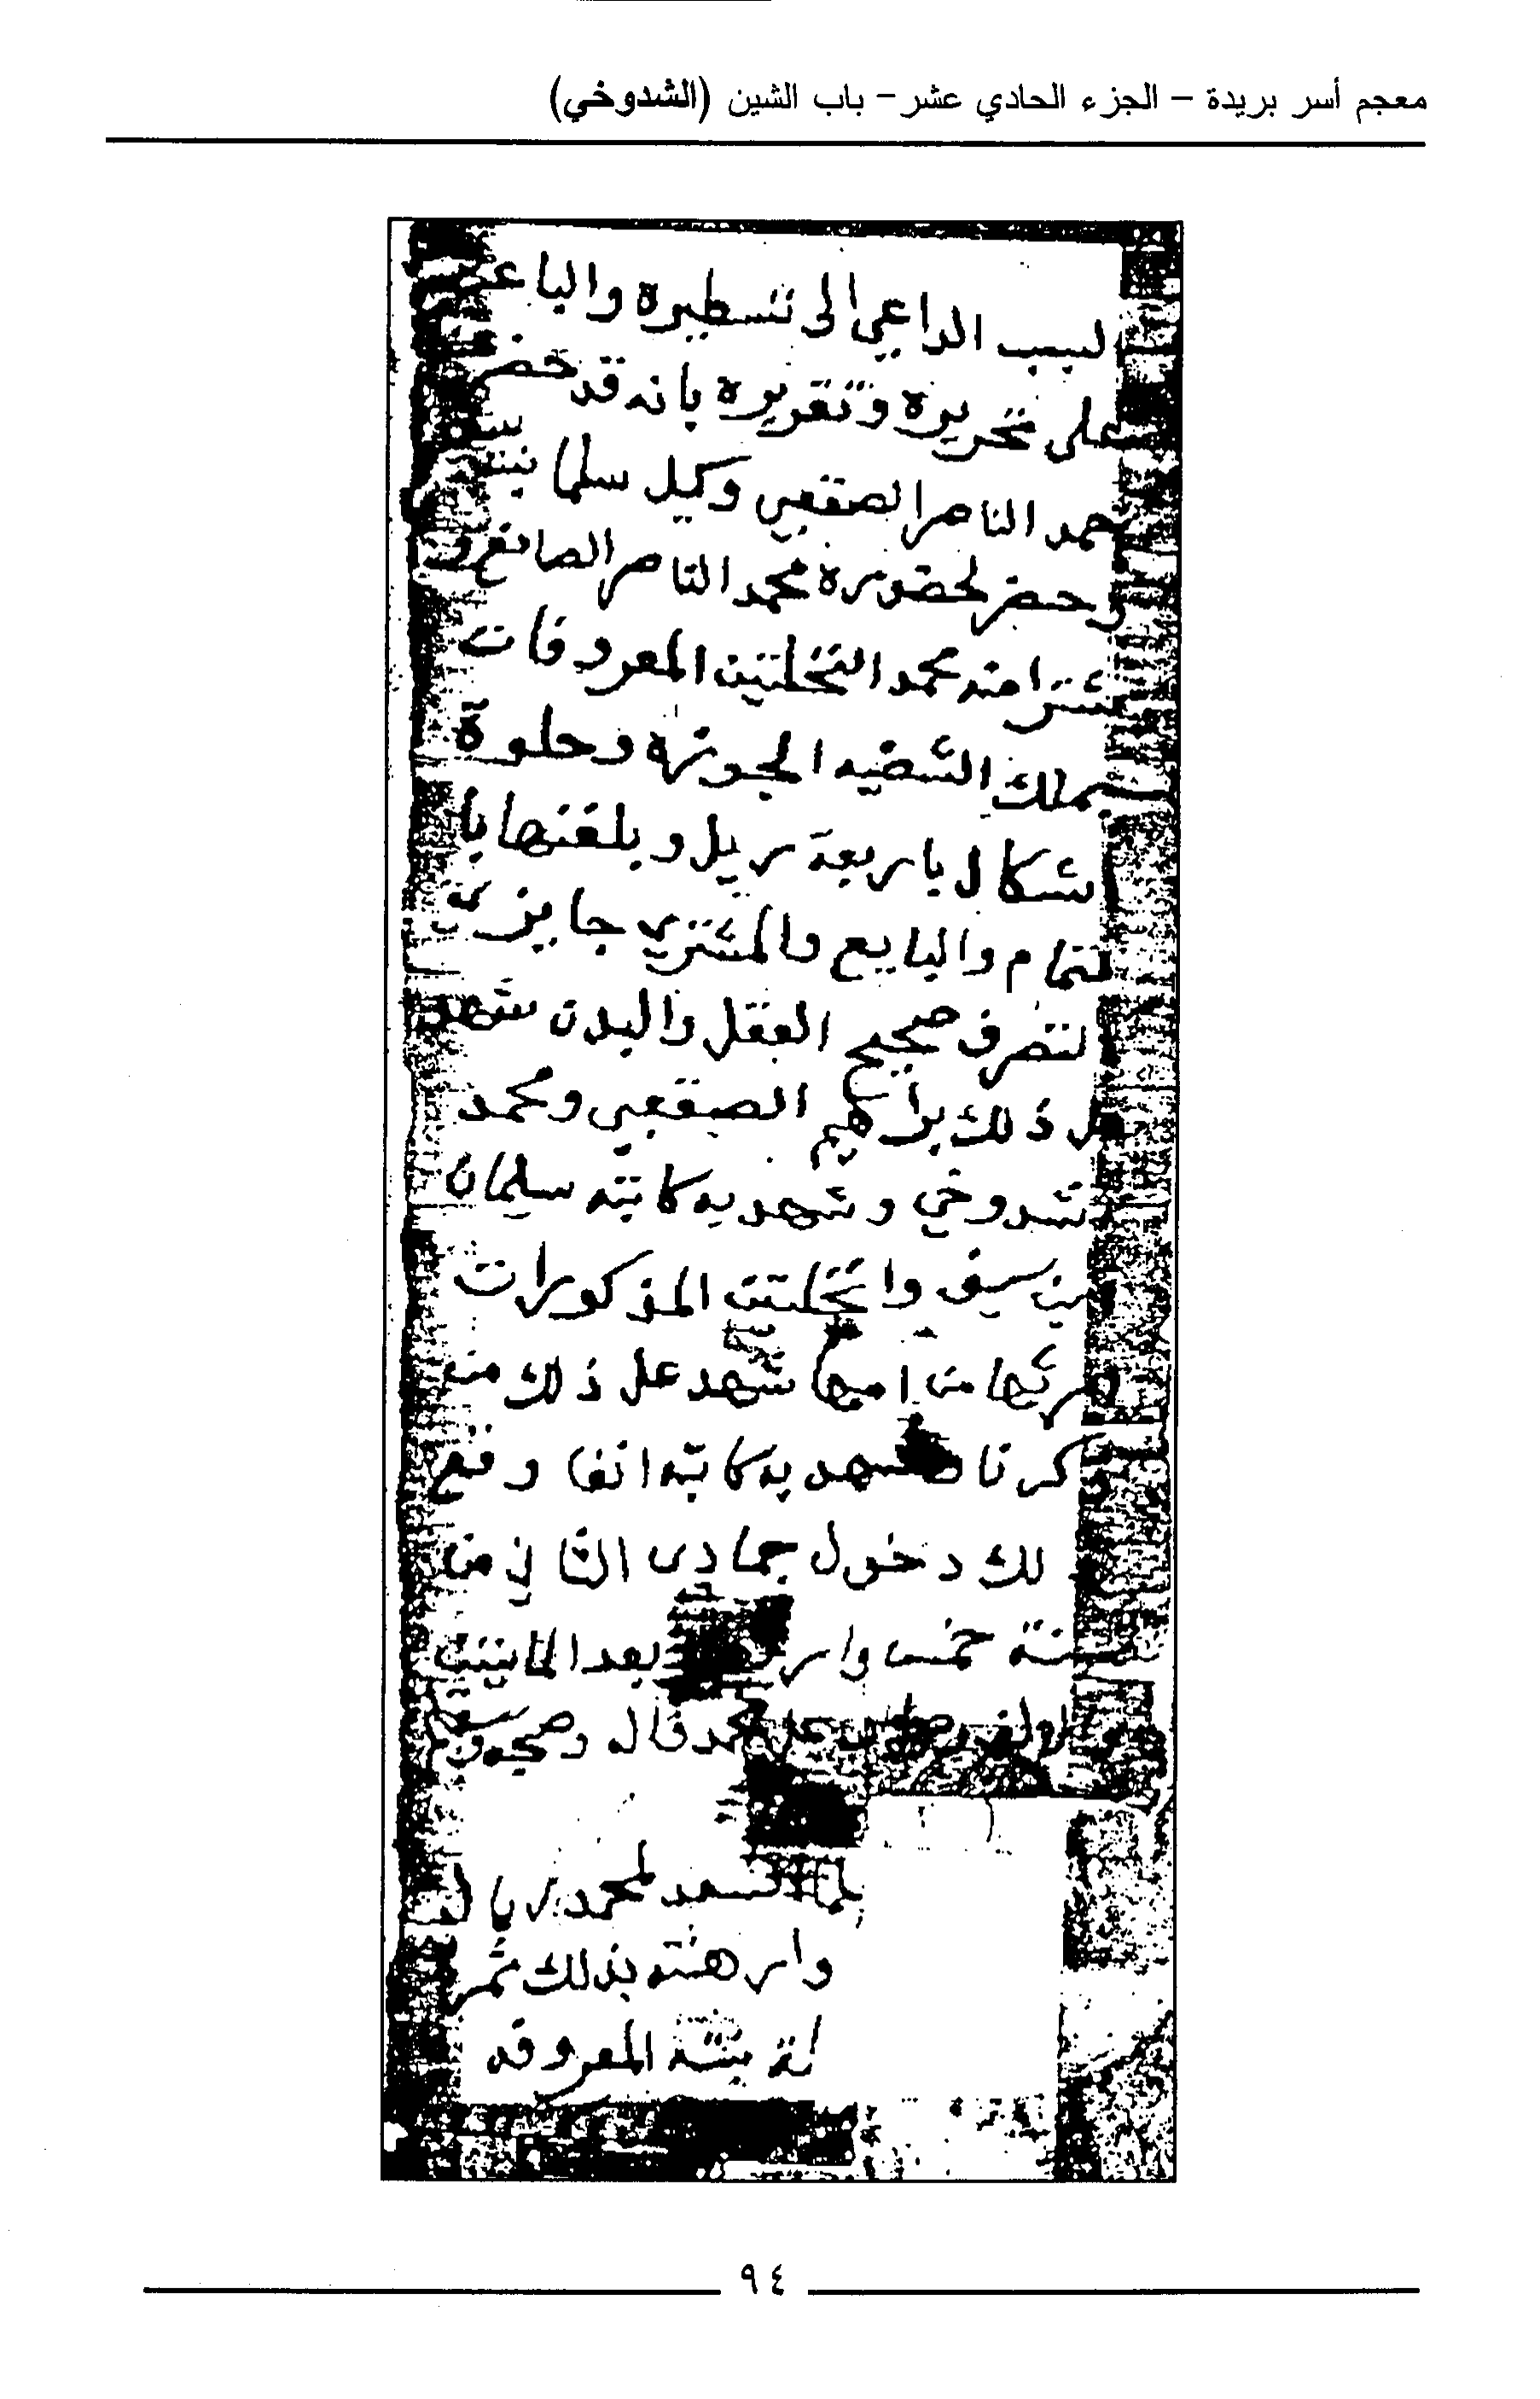 معجم أسر بريدة – الجزء الحادي عشر – باب الشين (الشدوخي)
السبب الداعي الى تسطيره والباعث
على تحريره وتقريره بانه قد حضر
حمد الناصر الصقعبي وكيل سلما
وحضر لحضوره محمد الناصر الصانع و
شترا منه محمد النخلتين المعروفات
بملك الشضيه الجوزه وحلوة
شكال باربعة ريل وبلغنها با
لتمام والبايع والمشتري جايزين
التصرف صحيح العقل والبدن شهد
على ذلك براهيم الصقعبي ومحمد
لشدوخي وشهد به كاتبه سليمان
بن سيف والنخلتين المذكورات
من امها شهد على ذلك من
ذكرنا وشهد به كاتبه انفا وقع
ذلك دخول جمادى الثاني من
سنة خمس بعد الماتين
والالف وصلى الله على محمد واله وصحبه وسلم
السعد لمحمد ريال
وارهنته بذلك ثمر
لة المعروفه
٩٤